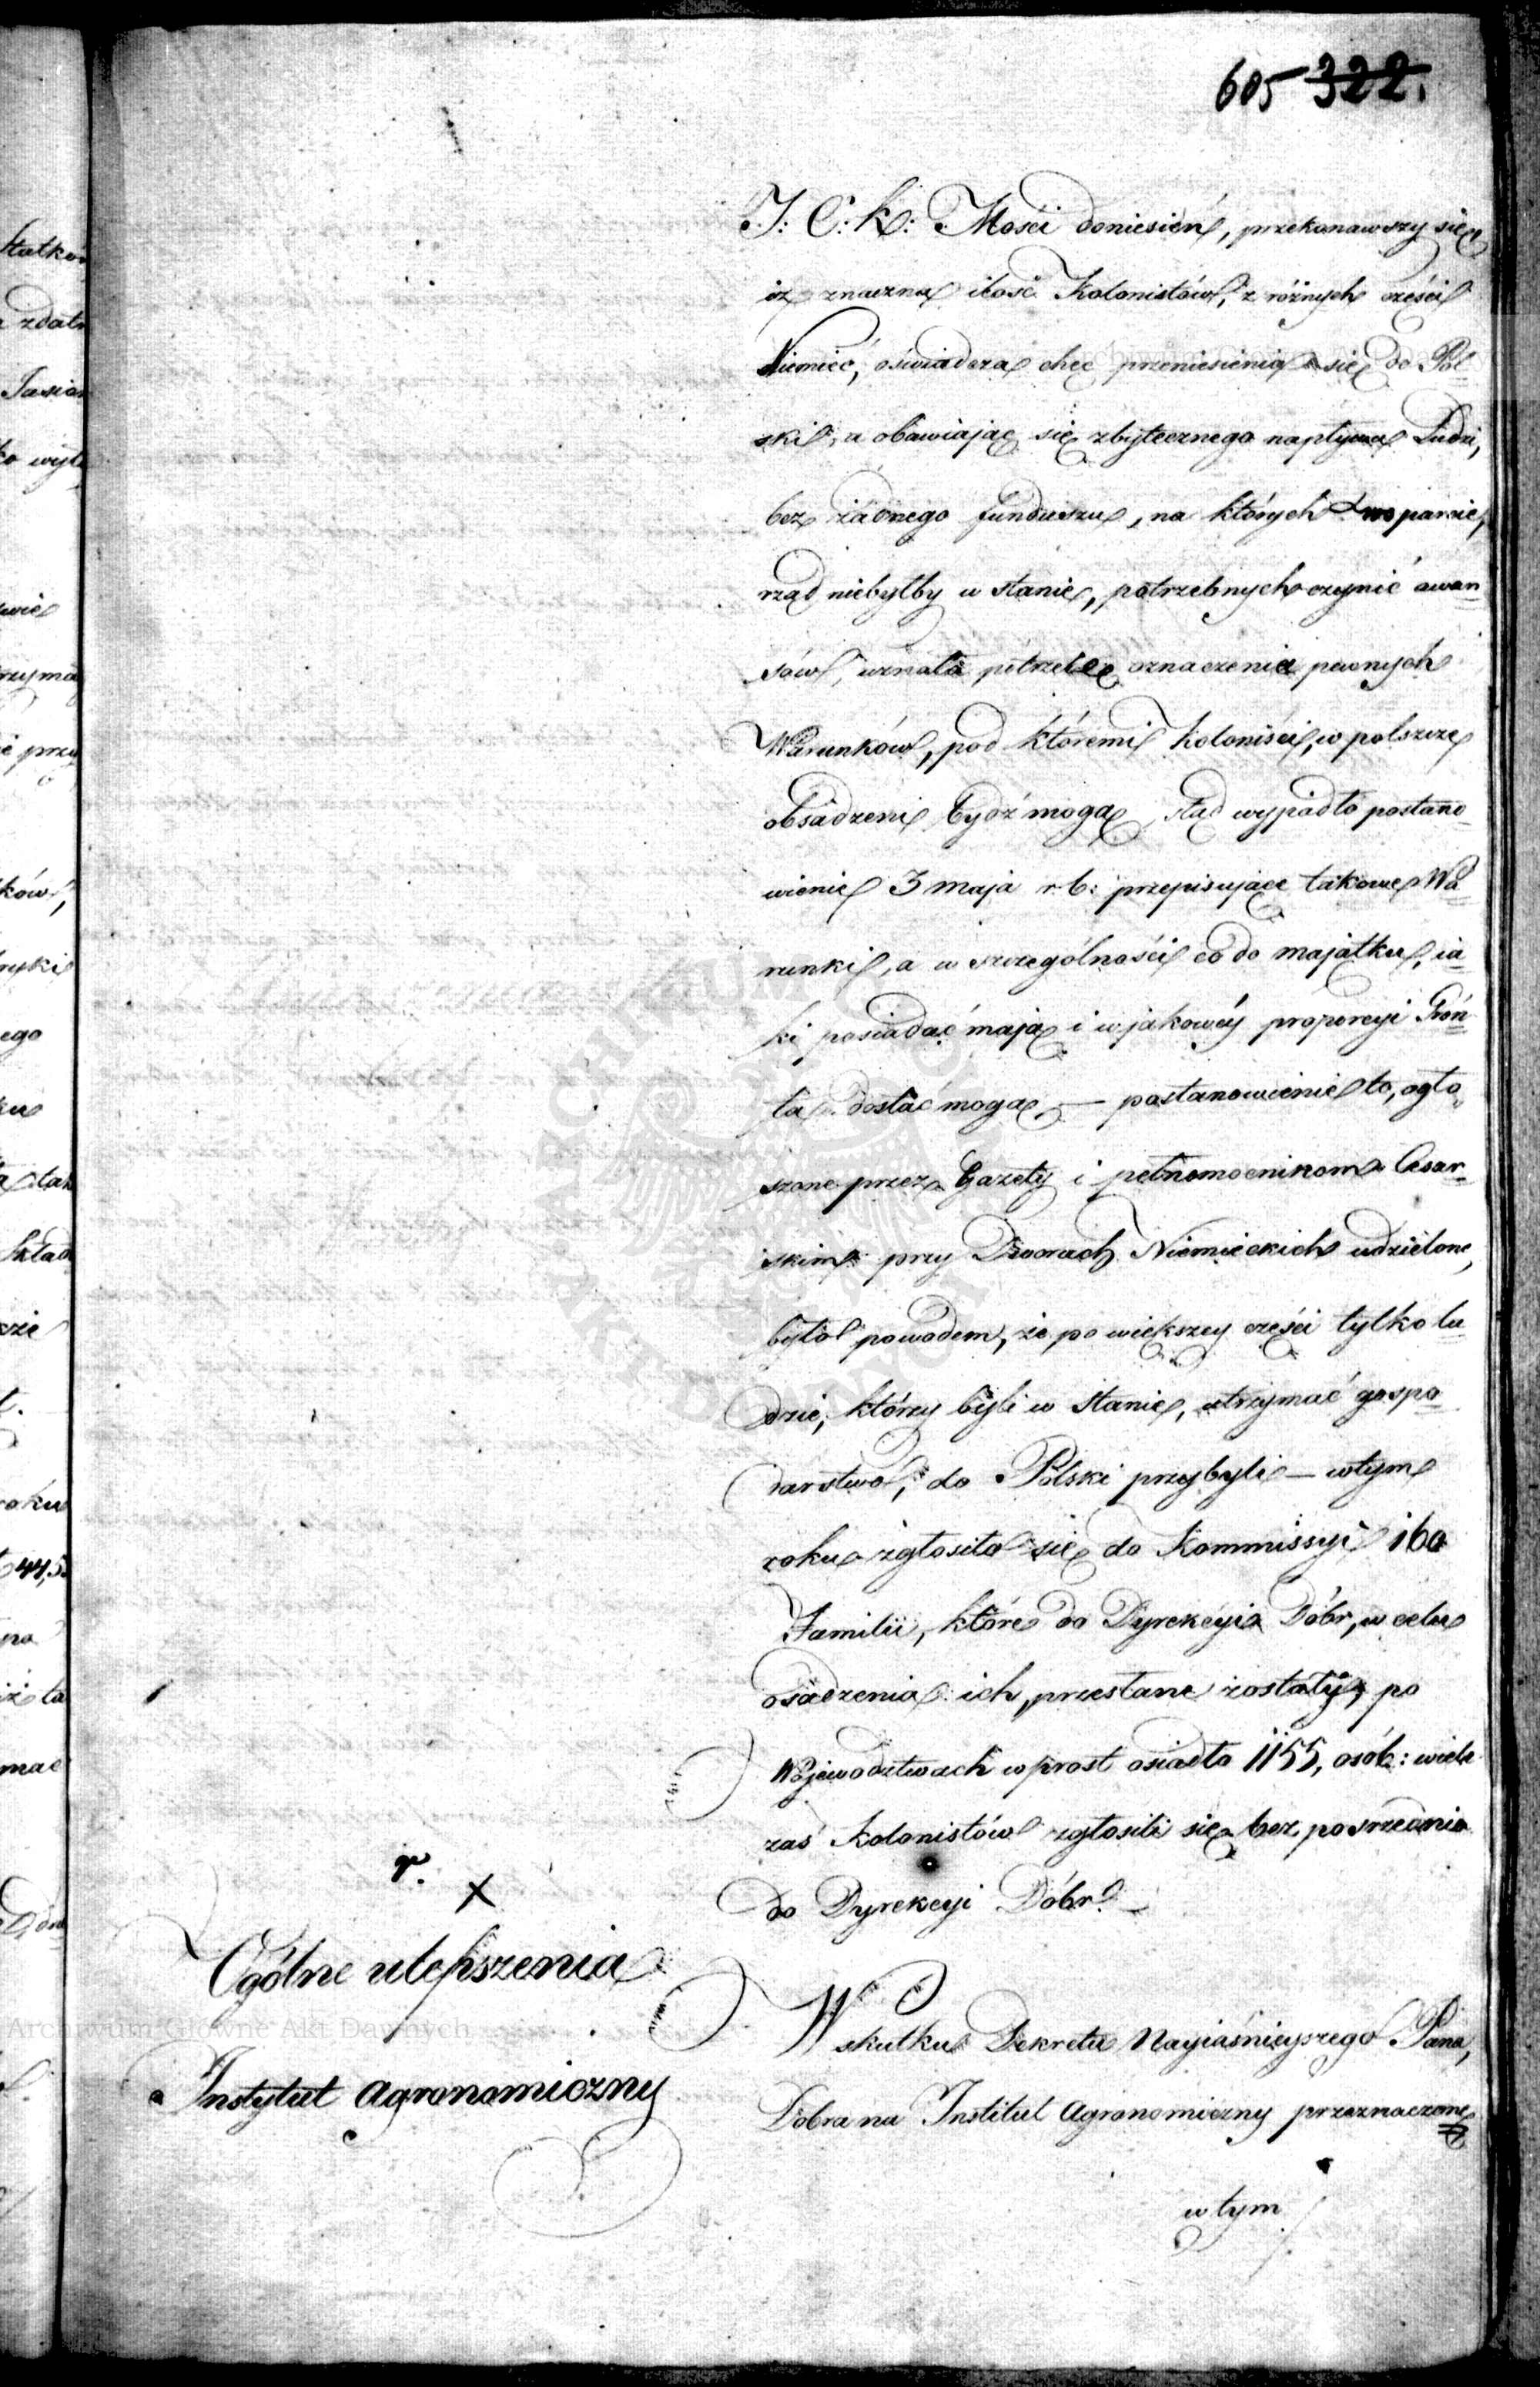 605 322.
J: C: K: Mości doniesień, przekonawszy się
iż znaczna ilość Kolonistów, z różnych części
Niemiec, oświadcza chęć przeniesienia się do Pol-
ski, a obawiając się zbytecznego napływu Ludzi,
bez żadnego funduszu, na których wsparcie,
rząd niebyłby w stanie, potrzebnych czynić awan=
sów, uznała potrzebę oznaczenia pewnych
Warunków, pod któremi Koloniści, w polszcze
obsadzeni bydź mogą, stąd wypadło postano=
wienie 3 maja r. b: przepisujące takowe Wa=
runki, a w szczególności co do majątku, ia=
ki posiadać mają i w jakowéy proporcyi Gron=
ta dostać mogą, — postanowienie to, ogło=
szone przez Gazety i pełnomocnikom Cesar=
skim przy Dworach Niemieckich udzielone,
było powodem, że po większey części tylko lu=
dzie, którzy byli w stanie, utrzymać gospo=
darstwo, do Polski przybyli — w tym
roku zgłosiło się do Kommissyi 160
Familii, które do Dyrekcyi Dóbr, w celu
osadzenia ich, przesłane zostały, po
Województwach wprost osiadło 1155, osób: wiele
zaś Kolonistów zgłosili się bez pośrednio
do Dyrekcyi Dóbr. —
X
Ogólne ulepszenia
Instytut Agronomiczny
W skutku Dekretu Nayiaśnieyszego Pana,
Dobra na Institut Agronomiczny przeznaczone
w tym
Archiwum Główne Akt Dawnych